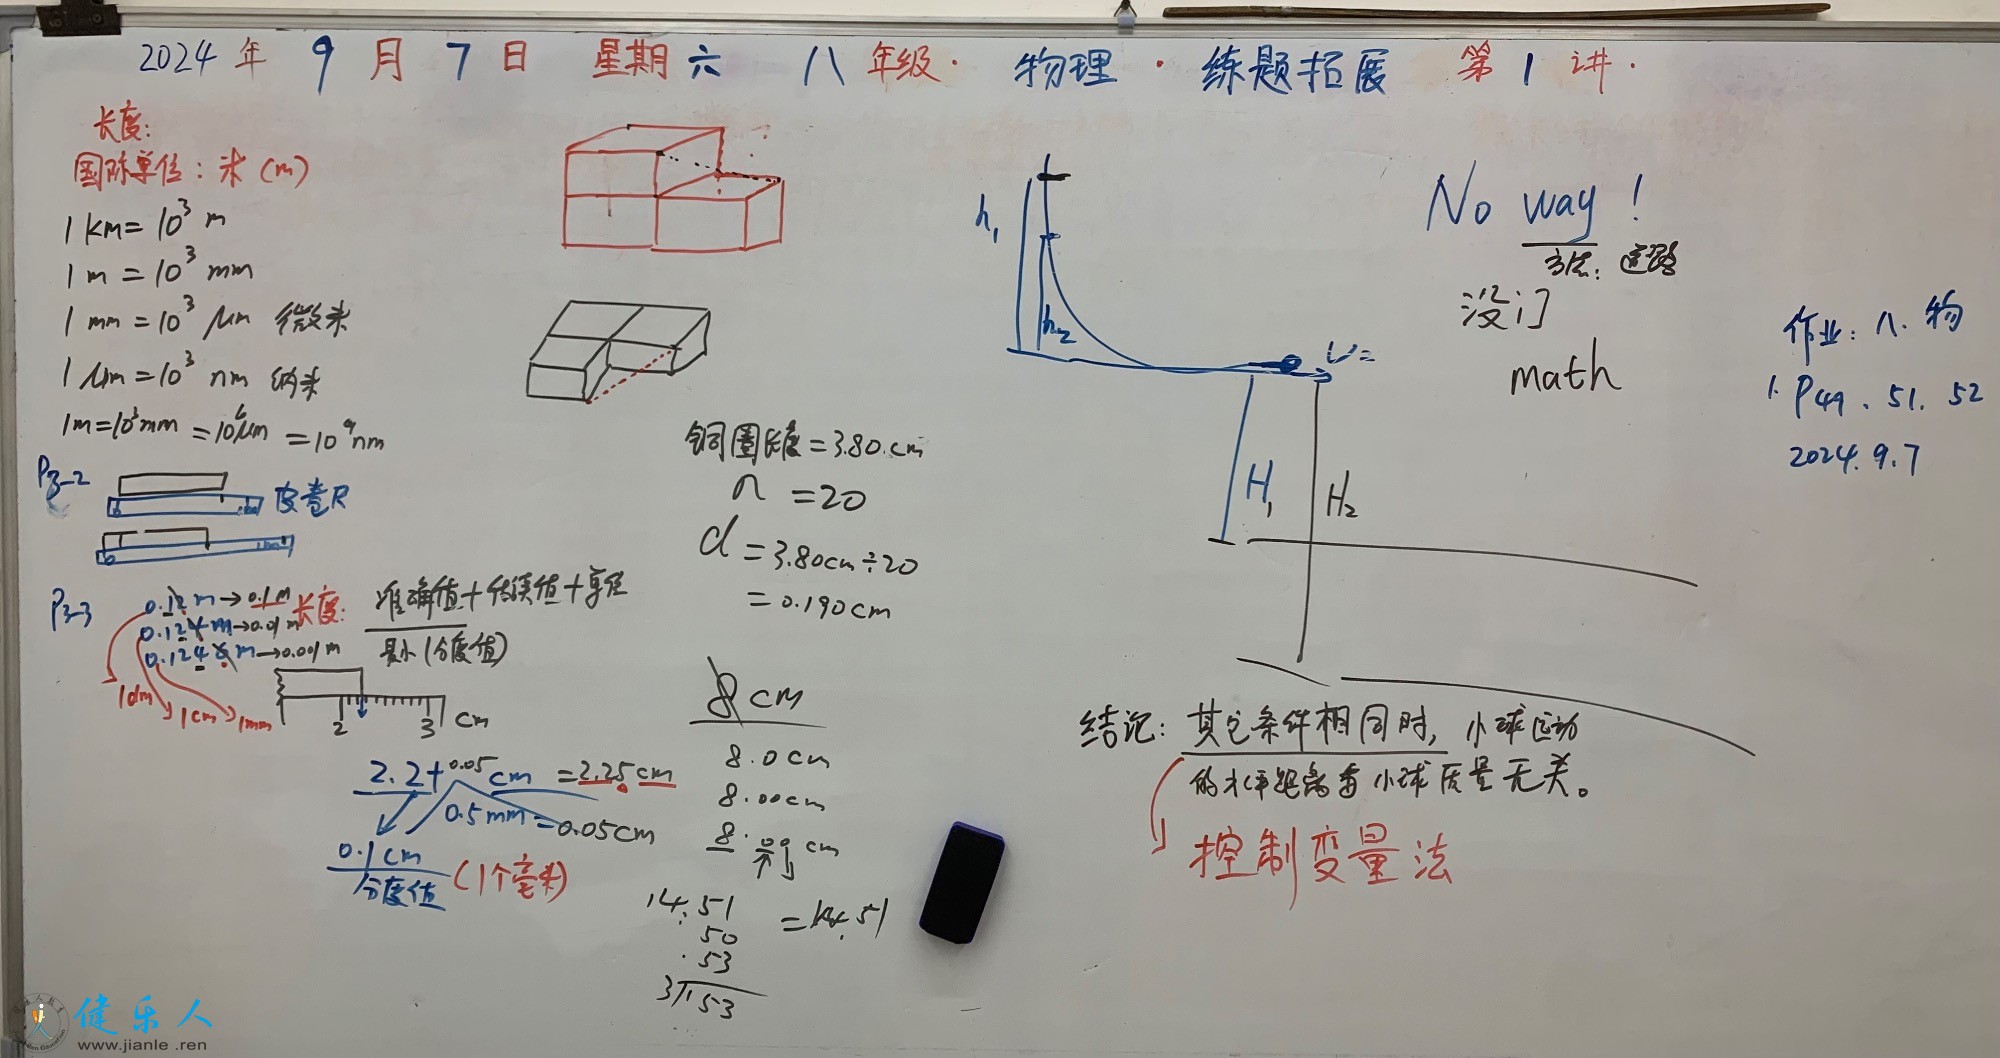 2024年 9月7日 星期六 八年级· 物理·练题拓展 第1讲·
长度:
国际单位: 米(m)
1 km = 10³ m
1 m = 10³ mm
1 mm = 10³ μm 微米
1 μm = 10³ nm 纳米
1m=10³mm =10⁶μm =10⁹nm
P3-2
皮卷尺
P3-3
0.12m→0.1m
0.124m→0.01m
0.1248m→0.001m
1dm
1cm
1mm
长度: 准确值+估读值+单位
最小(分度值)
2 3 cm
2.2+0.05cm =2.25cm
0.5mm=0.05cm
0.1cm
分度值 (1个毫米)
铜圈长度=3.80.cm
n =20
d =3.80cm÷20
=0.190cm
8 cm
8.0cm
8.00cm
8.00cm
14.51 =14.51
50
.53
3 153
h₁
h₂
v=
H₁
H₂
No way!
方法: 道路
没门
math
作业: 八.物
1. P49、51、52
2024.9.7
结论: 其它条件相同时, 小球运动
的水平距离与小球质量无关。
控制变量法
健乐人
www.jianle.ren